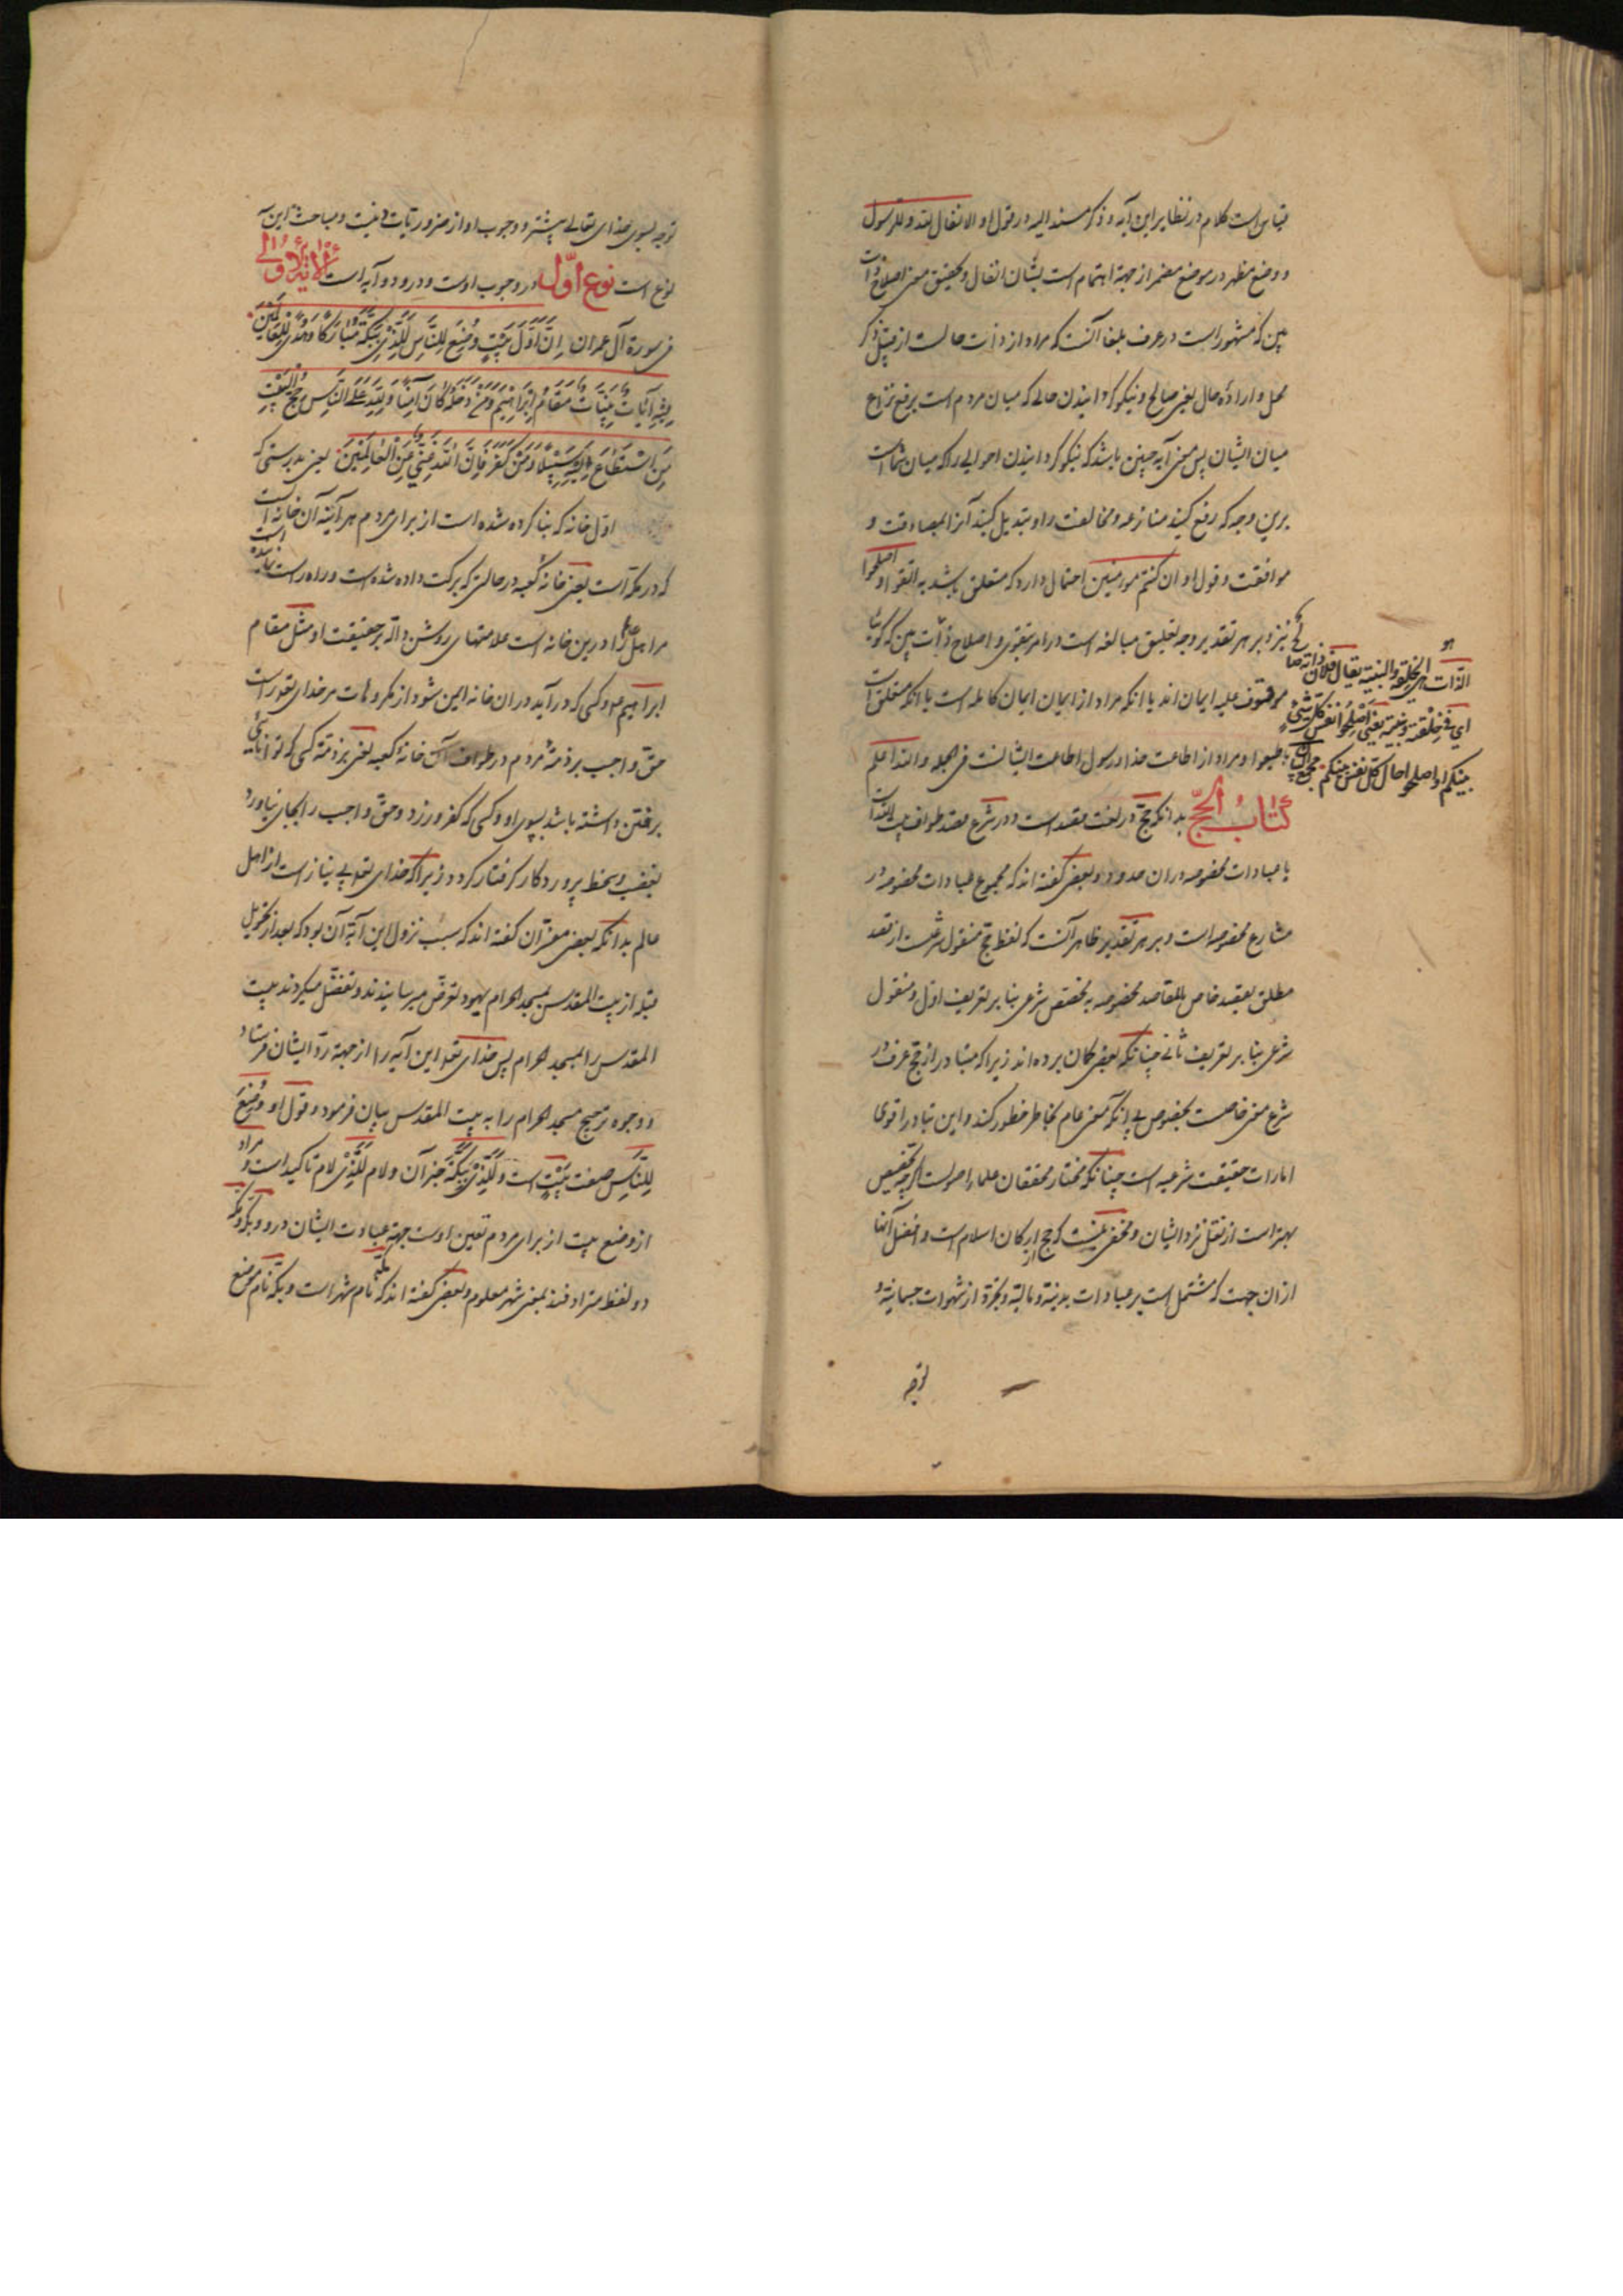 قیاس است کلام در نظایر این آیه و ذکر مسند الیه در قول او الانفال لله و للرسول
و وضع مظهر در موضع مضمر از جهة اهتمام است بشان انفال و تحقیق معنی اصلاح ذات
بین که مشهور است در عرف بلغا آنست که مراد از ذات حالست از قبیل ذکر
محل و اراده حال یعنی صالح و نیکو گردانیدن حالی که میان مردم است برفع نزاع
میان ایشان پس معنی آیه چنین باشد که نیکو گردانیدن احوالی را که میان شما است
برین وجه که رفع کنید منازعه و مخالفت را و تبدیل کنید آنرا بمصادقت و
موافقت و قول او ان کنتم مؤمنین احتمال دارد که متعلق باشد به اتقوا و اصلحوا
نیز و بر هر تقدیر وجه تعلیق مبالغه است در امر بتقوی و اصلاح ذات بین که گویا
موقوف علیه ایمان اند یا آنکه مراد از ایمان ایمان کامله است یا آنکه متعلق است
اطیعوا و مراد از اطاعت خدا و رسول اطاعت ایشانست فی الجمله و الله اعلم
کتاب الحج بدانکه حج در لغت مقصد است و در شرع مقصد طواف بیت الله است
با عبادات مخصوصه دران حدود و بعضی گفته اند که مجموع عبادات مخصوصه در
مشارع مخصوصه است و بر هر تقدیر ظاهر آنست که لفظ حج منقول شرعیست از قصد
مطلق بقصد خاص بالمقاصد مخصوصه به مخصص شرعی بنا بر تعریف اول و منقول
شرعی بنا بر تعریف ثانی چنانکه بعضی گمان برده اند زیرا که متبادر از حج عرف در
شرع معنی خاصست بخصوص بی آنکه معنی عام بخاطر خطور کند و این تبادر اقوی
امارات حقیقت شرعیه است چنانکه مختار محققان علماء اصولست اگرچه تخصیص
بهتر است از نقل نزد ایشان و مخفی نیست که حج از ارکان اسلام است و افضل آنها
ازان جهت که مشتمل است بر عبادات بدنیة و مالیة و بجزة از شهوات جسمانیة و
توجه
الذات هی الخلقة و البنیة یقال فلان ذاته صا
ای فی خلقته و بنیته یعنی اصلحوا نفس کل شیء
بینکم او اصلحوا حال کل نفس بینکم مجمع البیان
توجه بسوی خدای تعالی بیشتر و وجوب او از ضروریات دینیت و مباحث این سه
نوع است نوع اول در وجوب اوست و درو دو آیه است الآیة الاولی
فی سورة آل عمران اِنَّ اَوَّلَ بَیْتٍ وُضِعَ لِلنّاسِ لَلَّذی بِبَکَّةَ مُبارَکًا وَ هُدًی لِلْعالَمینَ
فِیهِ آیاتٌ بَیِّناتٌ مَقامُ اِبْراهیمَ وَ مَنْ دَخَلَهُ کانَ آمِنًا وَ لِلّهِ عَلَی النّاسِ حِجُّ الْبَیْتِ
مَنِ اسْتَطاعَ اِلَیْهِ سَبیلاً وَ مَنْ کَفَرَ فَاِنَّ اللهَ غَنِیٌّ عَنِ الْعالَمینَ یعنی بدرستی که
اول خانه که بنا کرده شده است از برای مردم هر آینه آن خانه است
که در مکه است یعنی خانه کعبه در حالتی که برکت داده شده است و راه راست نماینده است
مر اهل عالم را درین خانه است علامتهای روشن داله بر حقیقت او مثل مقام
ابراهیم ع و کسی که در آید دران خانه ایمن شود از مکروهات مر خدای تعالی راست
حق واجب بر ذمّه مردم در طواف آن خانه کعبه یعنی بر ذمّه کسی که توانایی
برفتن داشته باشد بسوی او و کسی که کفر ورزد و حق واجب را بجای نیاورد
بغضب و سخط پروردکار گرفتار گردد زیرا که خدای تعالی بی نیاز است از اهل
عالم بدانکه بعضی مفسران گفته اند که سبب نزول این آیه آن بود که بعد از تحویل
قبله از بیت المقدس بمسجد الحرام یهود تعرض میرسانیدند و تفضل میکردند بیت
المقدس را بمسجد الحرام پس خدای تعالی این آیه را از جهة ردّ ایشان فرستاد
و وجوه ترجیح مسجد الحرام را به بیت المقدس بیان فرمود و قول او وُضِعَ
لِلنّاسِ صفت بَیْتٍ است و لَلَّذی بِبَکَّةَ خبر آن و لام لَلَّذی لام تاکید است و مراد
از وضع بیت از برای مردم تعین اوست جهة عبادت ایشان درو و بکّه و مکّه
دو لفظ مترادفند بمعنی شهر معلوم و بعضی گفته اند که مکّه نام شهر است و بکّه نام موضع